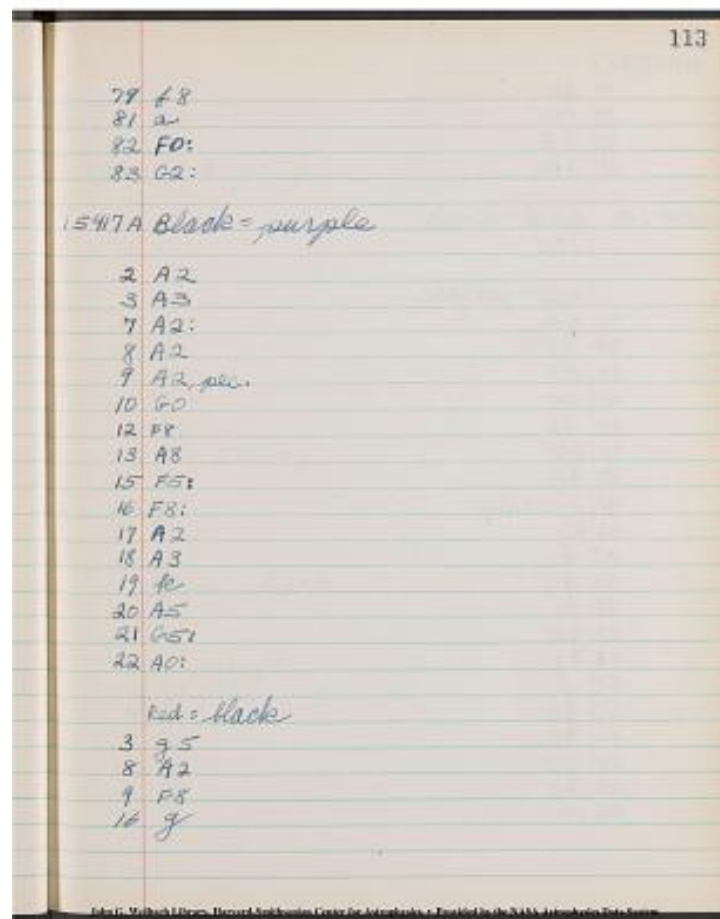 113
79 f8
81 a
82 F0:
83 G2:
15417A Black = purple
2 A2
3 A3
7 A2:
8 A2
9 A2, pec.
10 G0
12 F8
13 A8
15 F5:
16 F8:
17 A2
18 A3
19 k
20 A5
21 G5:
22 A0:
Red = black
3 g5
8 A2
9 F8
16 g
John G. Wolbach Library, Harvard-Smithsonian Center for Astrophysics • Provided by the NASA Astrophysics Data System